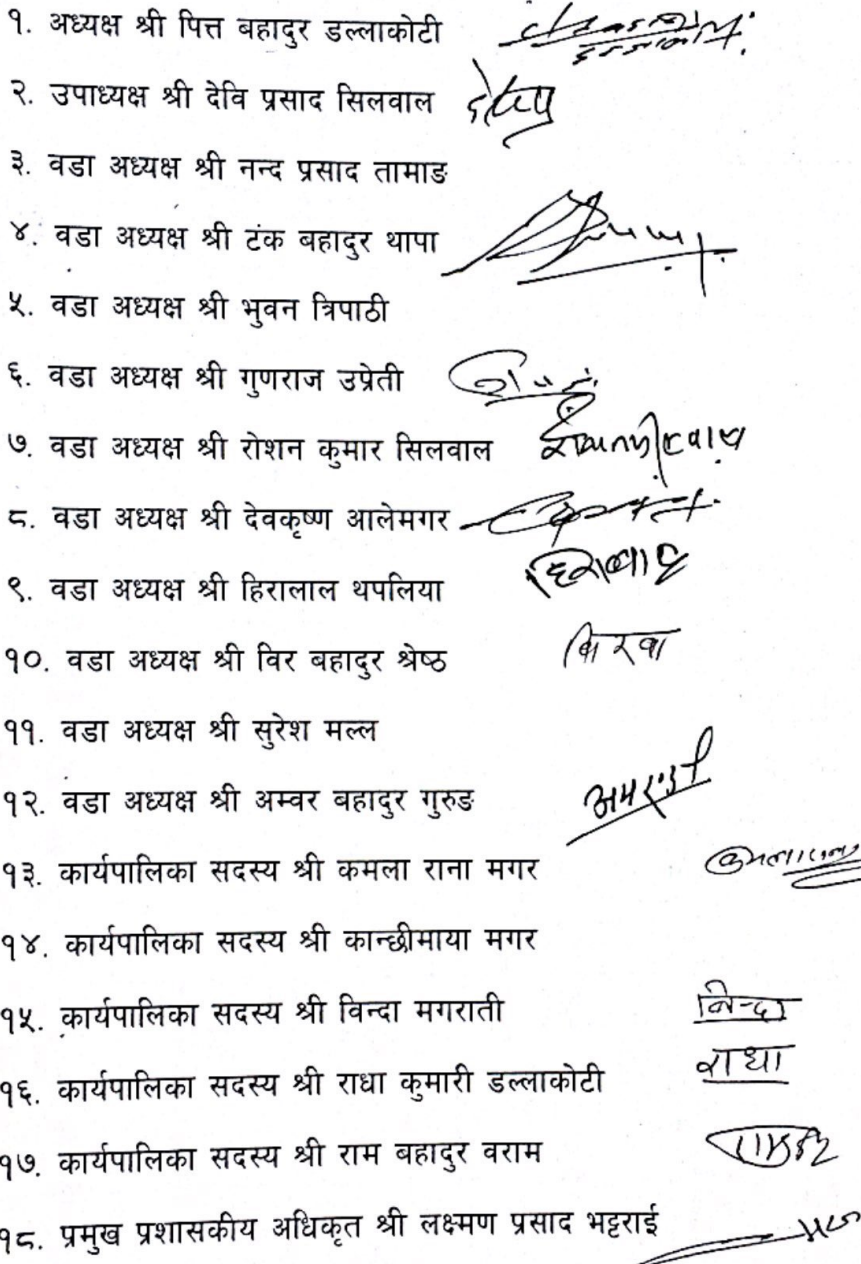 १. अध्यक्ष श्री पित्त बहादुर डल्लाकोटी
२. उपाध्यक्ष श्री देवि प्रसाद सिलवाल
३. वडा अध्यक्ष श्री नन्द प्रसाद तामाङ
४. वडा अध्यक्ष श्री टंक बहादुर थापा
५. वडा अध्यक्ष श्री भुवन त्रिपाठी
६. वडा अध्यक्ष श्री गुणराज उप्रेती
७. वडा अध्यक्ष श्री रोशन कुमार सिलवाल
८. वडा अध्यक्ष श्री देवकृष्ण आलेमगर
९. वडा अध्यक्ष श्री हिरालाल थपलिया
१०. वडा अध्यक्ष श्री विर बहादुर श्रेष्ठ
११. वडा अध्यक्ष श्री सुरेश मल्ल
१२. वडा अध्यक्ष श्री अम्वर बहादुर गुरुङ
१३. कार्यपालिका सदस्य श्री कमला राना मगर
१४. कार्यपालिका सदस्य श्री कान्छीमाया मगर
१५. कार्यपालिका सदस्य श्री विन्दा मगराती विन्दा
१६. कार्यपालिका सदस्य श्री राधा कुमारी डल्लाकोटी राधा
१७. कार्यपालिका सदस्य श्री राम बहादुर वराम
१८. प्रमुख प्रशासकीय अधिकृत श्री लक्ष्मण प्रसाद भट्टराई